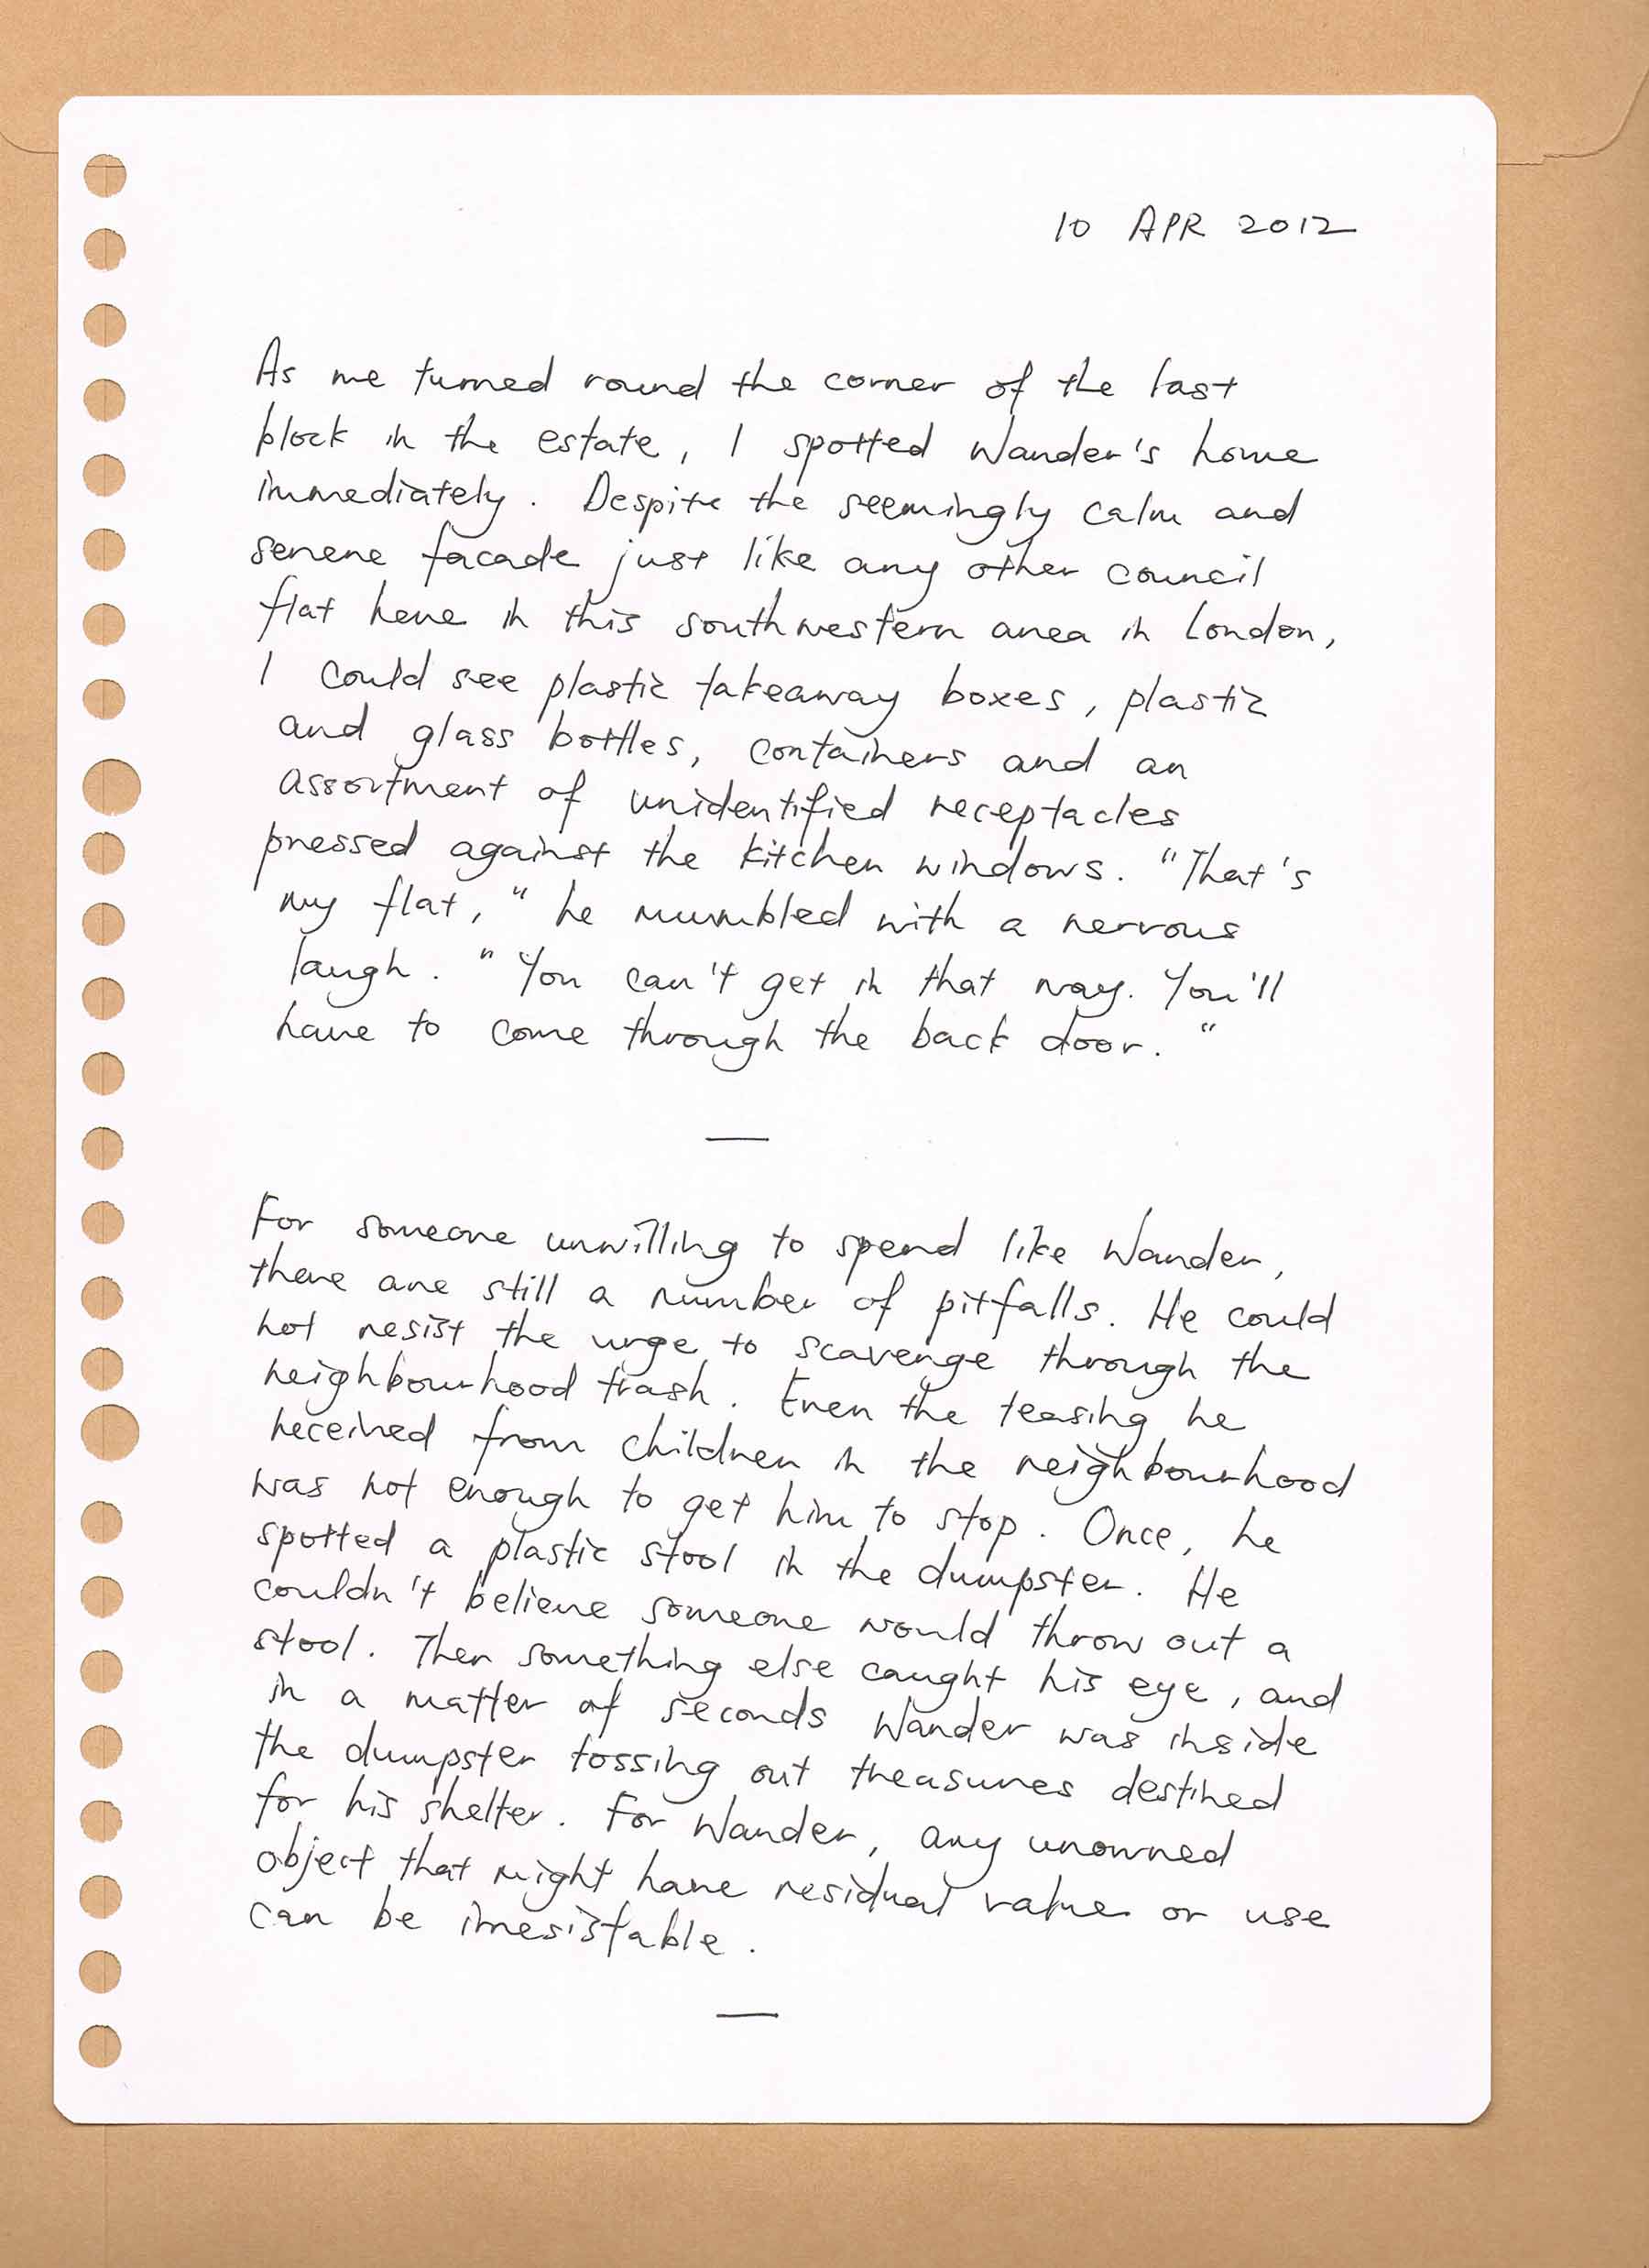 10 APR 2012
As we turned round the corner of the last
block in the estate, I spotted Wander's home
immediately. Despite the seemingly calm and
serene facade just like any other council
flat here in this southwestern area in London,
I could see plastic takeaway boxes, plastic
and glass bottles, containers and an
assortment of unidentified receptacles
pressed against the kitchen windows. "That's
my flat," he mumbled with a nervous
laugh. "You can't get in that way. You'll
have to come through the back door."
—
For someone unwilling to spend like Wander,
there are still a number of pitfalls. He could
not resist the urge to scavenge through the
neighbourhood trash. Even the teasing he
received from children in the neighbourhood
was not enough to get him to stop. Once, he
spotted a plastic stool in the dumpster. He
couldn't believe someone would throw out a
stool. Then something else caught his eye, and
in a matter of seconds Wander was inside
the dumpster tossing out treasures destined
for his shelter. For Wander, any unowned
object that might have residual value or use
can be irresistable.
—